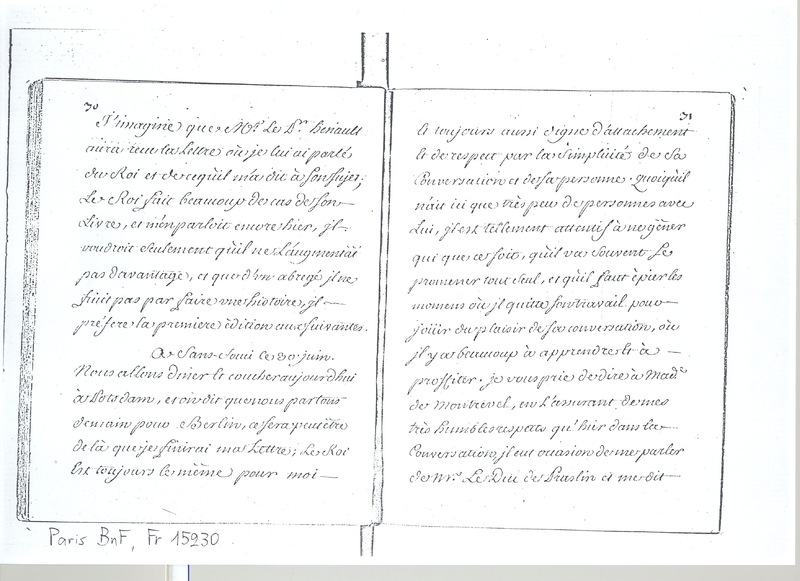 30
J'imagine que Mr. Le Pt. henault
aura reçu la Lettre où je lui ai parlé
du Roi et de ce qu'il m'a dit à son sujet;
Le Roi fait beaucoup de cas de son
Livre, et m'en parloit encore hier, jl
voudroit seulement qu'il ne L'augmentât
pas davantage, et que d'un abregé jl ne
finit pas par faire une histoire, jl
préfere la premiere édition aux suivantes.
A Sans-Souci ce 20 juin.
Nous allons diner et coucher aujourdhui
à Potsdam, et on dit que nous partons
demain pour Berlin, ce sera peutêtre
de là que je finirai ma Lettre; Le Roi
Est toujours le même pour moi
31
et toujours aussi digne d'attachement
et de respect par la Simplicité de Sa
Conversation et de sa personne. quoiqu'il
n'ait ici que très peu de personnes avec
Lui, jl est tellement attentif à ne gêner
qui que ce soit, qu'il va Souvent Se
promener tout Seul, et qu'il faut épier les
momens où jl quitte son travail pour
joüir du plaisir de sa conversation, où
jl y a beaucoup à apprendre et à
proffiter. je vous prie de dire à Made.
de Montrevel, en L'assurant de mes
très humbles respects qu'hier dans la
Conversation, jl eut occasion de me parler
de Mr. Le Duc de Praslin et me dit
Paris BnF, Fr 15230